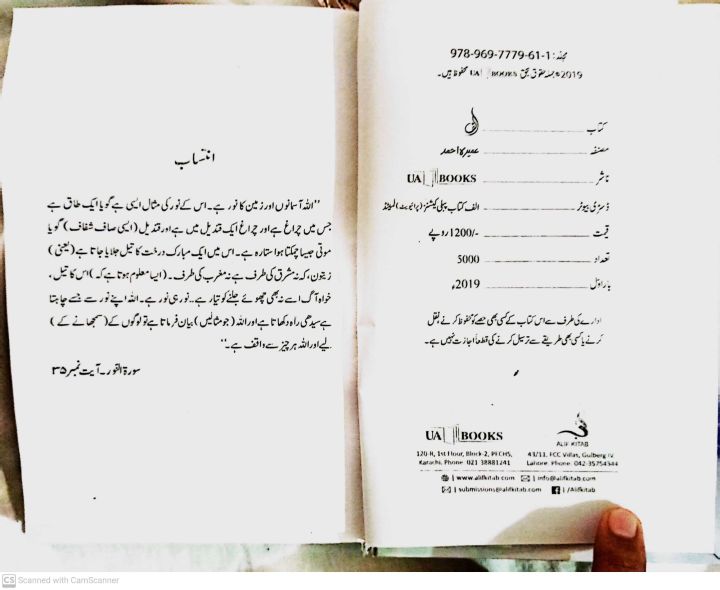 انتساب
"اللہ آسمانوں اور زمین کا نور ہے۔ اس کے نور کی مثال ایسی ہے گویا ایک طاق ہے
جس میں چراغ ہے اور چراغ ایک قندیل میں ہے اور قندیل (ایسی صاف شفاف) گویا
موتی جیسا چمکتا ہوا ستارہ ہے۔ اس میں ایک مبارک درخت کا تیل جلایا جاتا ہے (یعنی)
زیتون، کہ نہ مشرق کی طرف ہے نہ مغرب کی طرف۔ (ایسا معلوم ہوتا ہے کہ) اس کا تیل،
خواہ آگ اسے نہ بھی چھوئے جلنے کو تیار ہے.. نور ہی نور ہے۔ اللہ اپنے نور سے جسے چاہتا
ہے سیدھی راہ دکھاتا ہے اور اللہ (جو مثالیں) بیان فرماتا ہے تو لوگوں کے (سمجھانے کے)
لیے اور اللہ ہر چیز سے واقف ہے۔"
سورۃ النور۔ آیت نمبر ۳۵
مجلد: 978-969-7779-61-1
2019© جملہ حقوق بحق UA BOOKS محفوظ ہیں۔
کتاب الف
مصنفہ عمیرہ احمد
ناشر UA BOOKS
ڈسٹری بیوٹر الف کتاب پبلی کیشنز (پرائیویٹ) لمیٹڈ
قیمت 1200/- روپے
تعداد 5000
بار اوّل 2019ء
ادارے کی طرف سے اس کتاب کے کسی بھی حصے کو محفوظ کرنے، نقل
کرنے یا کسی بھی طریقے سے ترسیل کرنے کی قطعاً اجازت نہیں ہے۔
UA BOOKS
120-R, 1st Flour, Block-2, PECHS,
Karachi, Phone: 021 38881241
ALIF KITAB
43/11, FCC Villas, Gulberg IV
Lahore. Phone: 042-35754344
| www.alifkitab.com | info@alifkitab.com
| submissions@alifkitab.com | /Alifkitab
CS Scanned with CamScanner